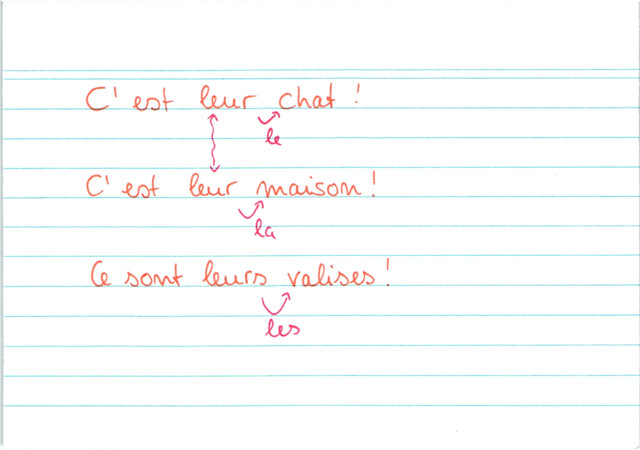 C'est leur chat !
le
C'est leur maison !
la
Ce sont leurs valises !
les